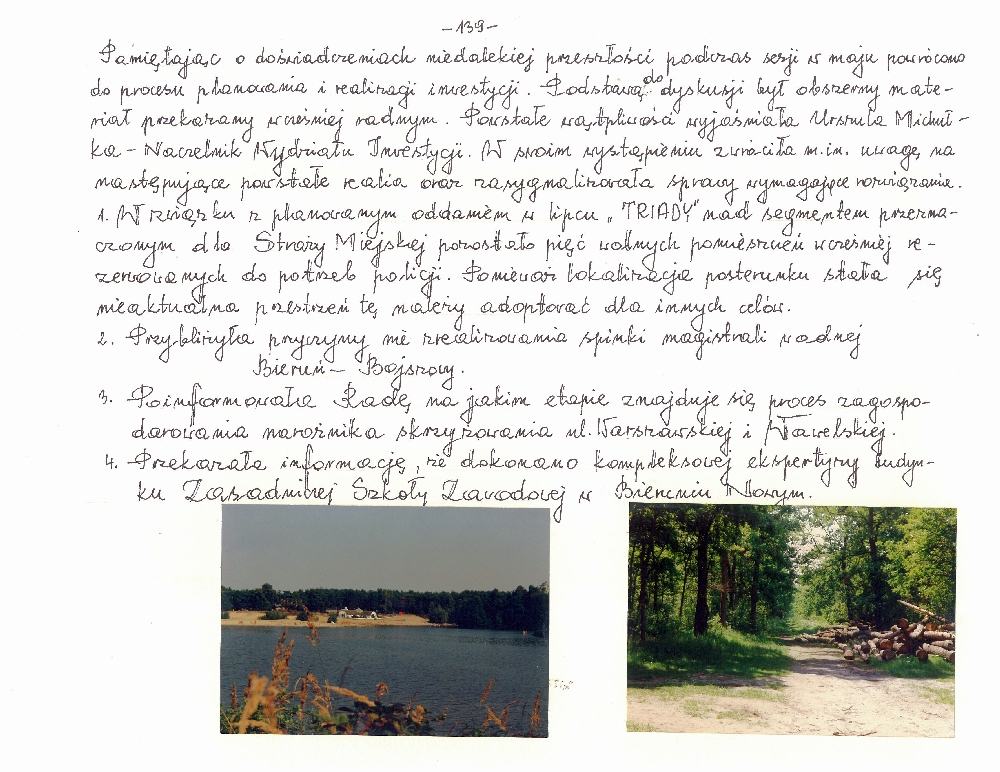 -139-
Pamiętając o doświadczeniach niedalekiej przeszłości podczas sesji w maju powrócono
do procesu planowania i realizacji inwestycji. Podstawą do dyskusji był obszerny mate-
riał przekazany wcześniej radnym. Powstałe wątpliwości wyjaśniała Urszula Michał-
ka - Naczelnik Wydziału Inwestycji. W swoim wystąpieniu zwróciła m.in. uwagę na
następujące powstałe realia oraz zasygnalizowała sprawy wymagające rozwiązania.
1. W związku z planowanym oddaniem w lipcu "TRIADY" nad segmentem przezna-
czonym dla Straży Miejskiej pozostało pięć wolnych pomieszczeń wcześniej re-
zerwowanych do potrzeb policji. Ponieważ lokalizacja posterunku stała się
nieaktualna przestrzeń tę należy adoptować dla innych celów.
2. Przybliżyła przyczyny nie zrealizowania spinki magistrali wodnej
Bieruń - Bojszowy.
3. Poinformowała Radę, na jakim etapie znajduje się proces zagospo-
darowania narożnika skrzyżowania ul. Warszawskiej i Wawelskiej.
4. Przekazała informację, że dokonano kompleksowej ekspertyzy budyn-
ku Zasadniczej Szkoły Zawodowej w Bieruniu Nowym.